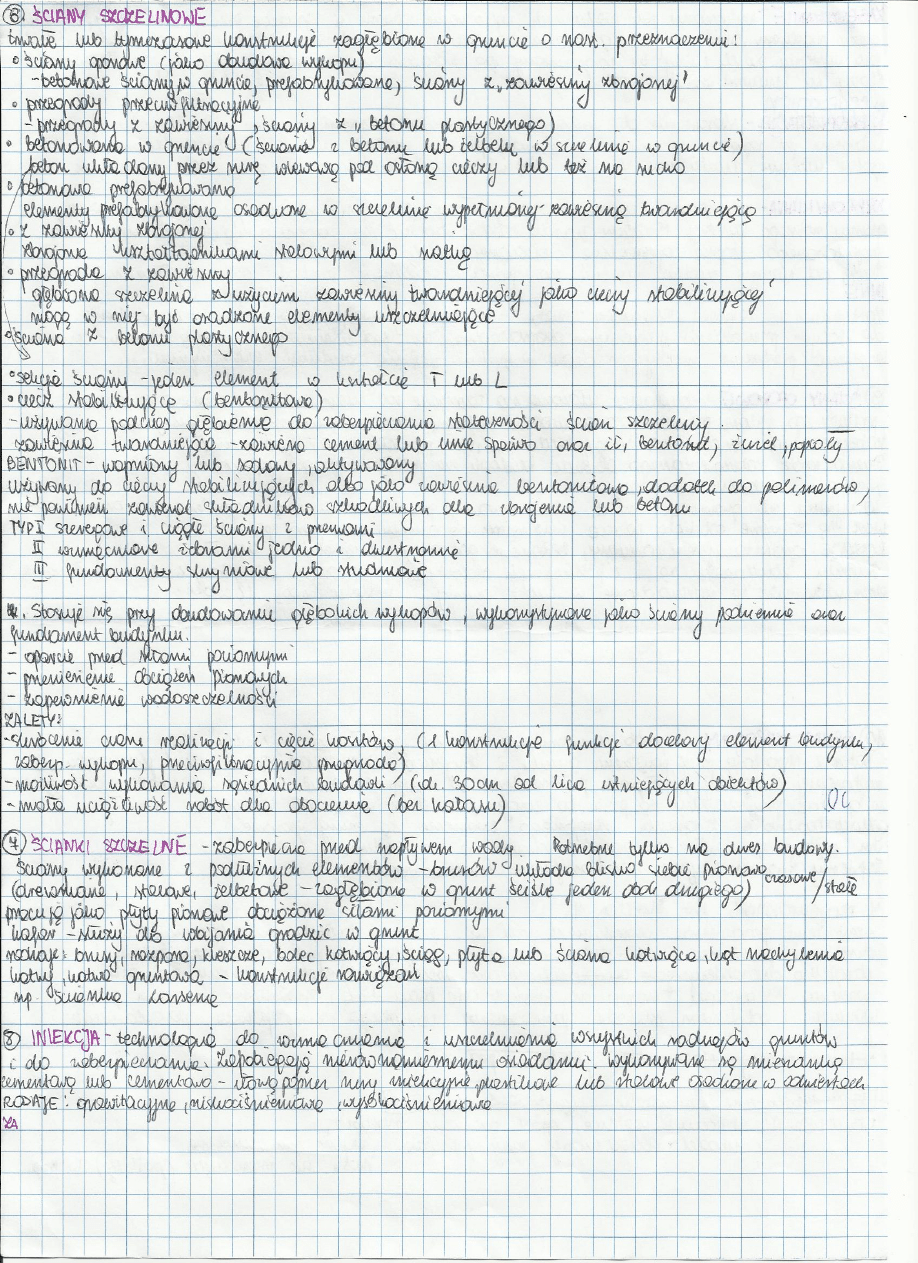 ⑥ ŚCIANY SZCZELINOWE
trwałe lub tymczasowe konstrukcje zagłębione w gruncie o nast. przeznaczeniu:
• ściany oporowe (jako obudowa wykopu)
- betonowe ściany w gruncie, prefabrykowane, ściany z „zawiesiny zbrojonej"
• przegrody przeciwfiltracyjne
- przegrody z zawiesiny, ściany z „betonu plastycznego)
• betonowana w gruncie (ściana z betonu lub żelbetu w szczelinie w gruncie)
beton układany przez rurę wlewową pod osłoną cieczy lub też na sucho
• betonowa prefabrykowana
elementy prefabrykowane osadzone w szczelinie wypełnionej zawiesiną twardniejącą
• z zawiesiny zbrojonej
zbrojona kształtownikami stalowymi lub siatką
• przegroda z zawiesiny
głębiona szczelina z użyciem zawiesiny twardniejącej jako cieczy stabilizującej
mogą w niej być osadzone elementy uszczelniające
• ściana z betonu plastycznego
• sekcja ściany - jeden element w kształcie T lub L
• ciecz stabilizująca (bentonitowa)
- używana podczas głębienia do zabezpieczania stateczności ścian szczeliny.
zawiesina twardniejąca - zawiera cement lub inne spoiwo oraz ił, bentonit, żużel, popioły
BENTONIT - wapniowy lub sodowy, aktywowany
używany do cieczy stabilizujących albo jako zawiesina bentonitowa, dodatek do polimerów,
nie powinien zawierać składników szkodliwych dla zbrojenia lub betonu
TYP I szeregowe i ciągłe ściany z przerwami
II wzmocnione żebrami jedno i dwustronnie
III fundamenty skrzyniowe lub studniowe
. Stosuje się przy obudowaniu głębokich wykopów, wykorzystywane jako ściany podziemia oraz
fundament budynku.
- oparcie przed siłami poziomymi
- przeniesienie obciążeń pionowych
- zapewnienie wodoszczelności
ZALETY:
- skrócenie czasu realizacji i cięcie kosztów, (1 konstrukcja funkcje docelowy element budynku,
zabezp. wykopu, przeciwfiltracyjna przegroda)
- możliwość wykonania sąsiednich budowli (ok. 30cm od lica istniejących obiektów)
- mała uciążliwość robót dla otoczenia (bez hałasu)
⑦ ŚCIANKI SZCZELNE - zabezpiecza przed napływem wody. Potrzebne tylko na okres budowy.
ściany wykonane z podłużnych elementów - brusów układa blisko siebie pionowo
(drewniane, stalowe, żelbetowe - zagłębione w grunt ściśle jeden obok drugiego) czasowe/stałe
pracują jako płyty pionowe obciążone siłami poziomymi
kafar - służy do wbijania grodzic w grunt
rodzaje: brusy, rozpora, kleszcze, bolec kotwiący, ściąg, płyta lub ściana kotwiąca, kąt nachylenia
kotwy, kotwa gruntowa - konstrukcje rozwiązań
np. ścianka Larsena
⑧ INIEKCJA - technologia do wzmacniania i uszczelniania wszystkich rodzajów gruntów
i do zabezpieczania. Zapobiegają nierównomiernemu osiadaniu. wykonywane są mieszanką
cementową lub cementowo - iłową poprzez rury iniekcyjne, plastikowe lub stalowe osadzone w odwiertach.
RODZAJE: grawitacyjne, niskociśnieniowe, wysokociśnieniowe
ZA